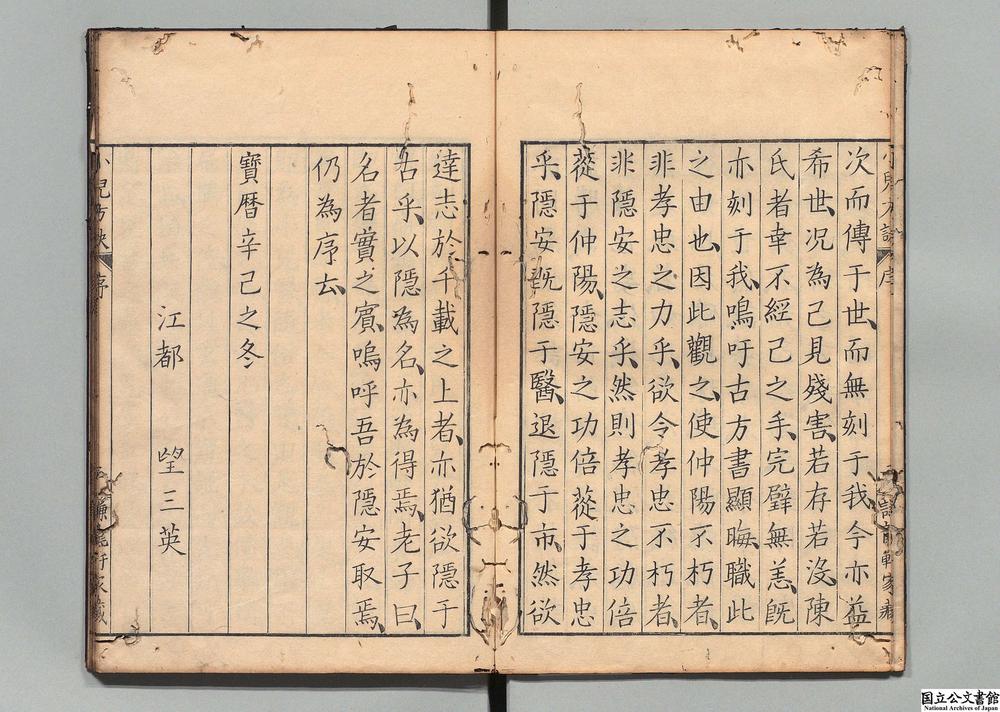 次而傳于世、而無刻于我、今亦益
希世、況為己見殘害、若存若沒、陳
氏者幸不經己之手、完璧無恙、既
亦刻于我、鳴吁古方書顯晦、職此
之由也、因此觀之、使仲陽不朽者、
非孝忠之力乎、欲令孝忠不朽者、
非隱安之志乎、然則孝忠之功倍
蓰于仲陽、隱安之功倍蓰于孝忠
乎、隱安既隱于醫、退隱于市、然欲
達志於千載之上者、亦猶欲隱于
古乎、以隱為名、亦為得焉、老子曰、
名者實之賓、嗚呼吾於隱安取焉、
仍為序云、
寶曆辛巳之冬
江都 望三英
小兒方訣 序
国立公文書館
National Archives of Japan